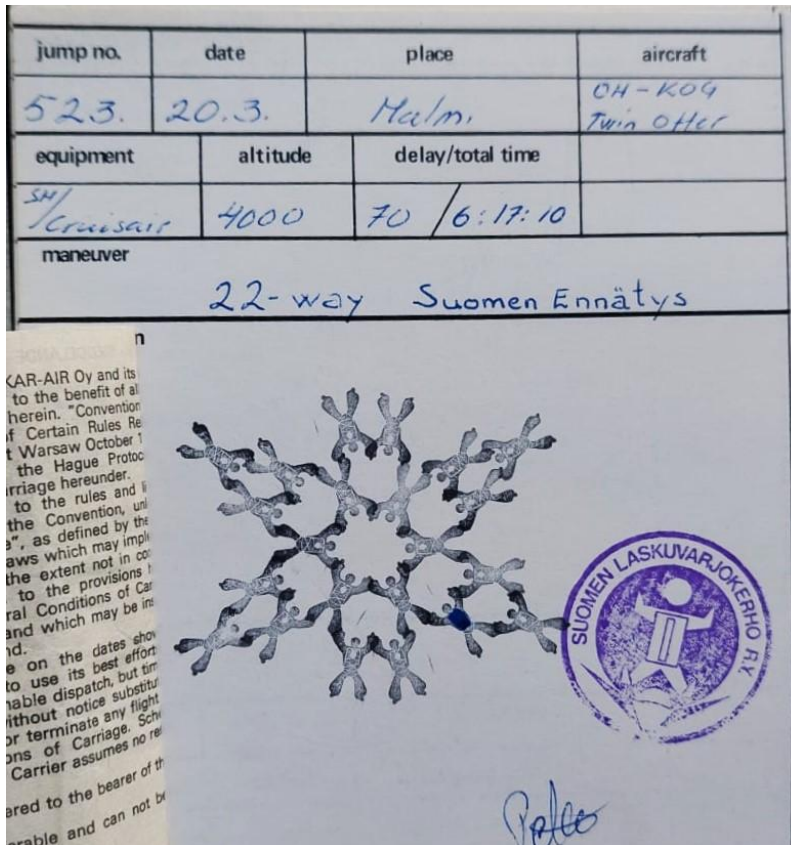 jump no. date place aircraft
523. 20.3. Malmi OH-KOG
Twin Otter
equipment altitude delay/total time
SH/
Cruisair 4000 70 / 6:17:10
maneuver
22-way Suomen Ennätys
n
KAR-AIR Oy and its
to the benefit of al
herein. "Convention
of Certain Rules Re
t Warsaw October 1
the Hague Protoc
rriage hereunder.
to the rules and li
the Convention, unl
e", as defined by the
aws which may imple
the extent not in con
to the provisions
ral Conditions of Car
and which may be ins
nd.
e on the dates show
to use its best effort
nable dispatch, but tim
ithout notice substitut
or terminate any flight
ons of Carriage. Sche
Carrier assumes no re
ered to the bearer of th
erable and can not be
SUOMEN LASKUVARJOKERHO R.Y.